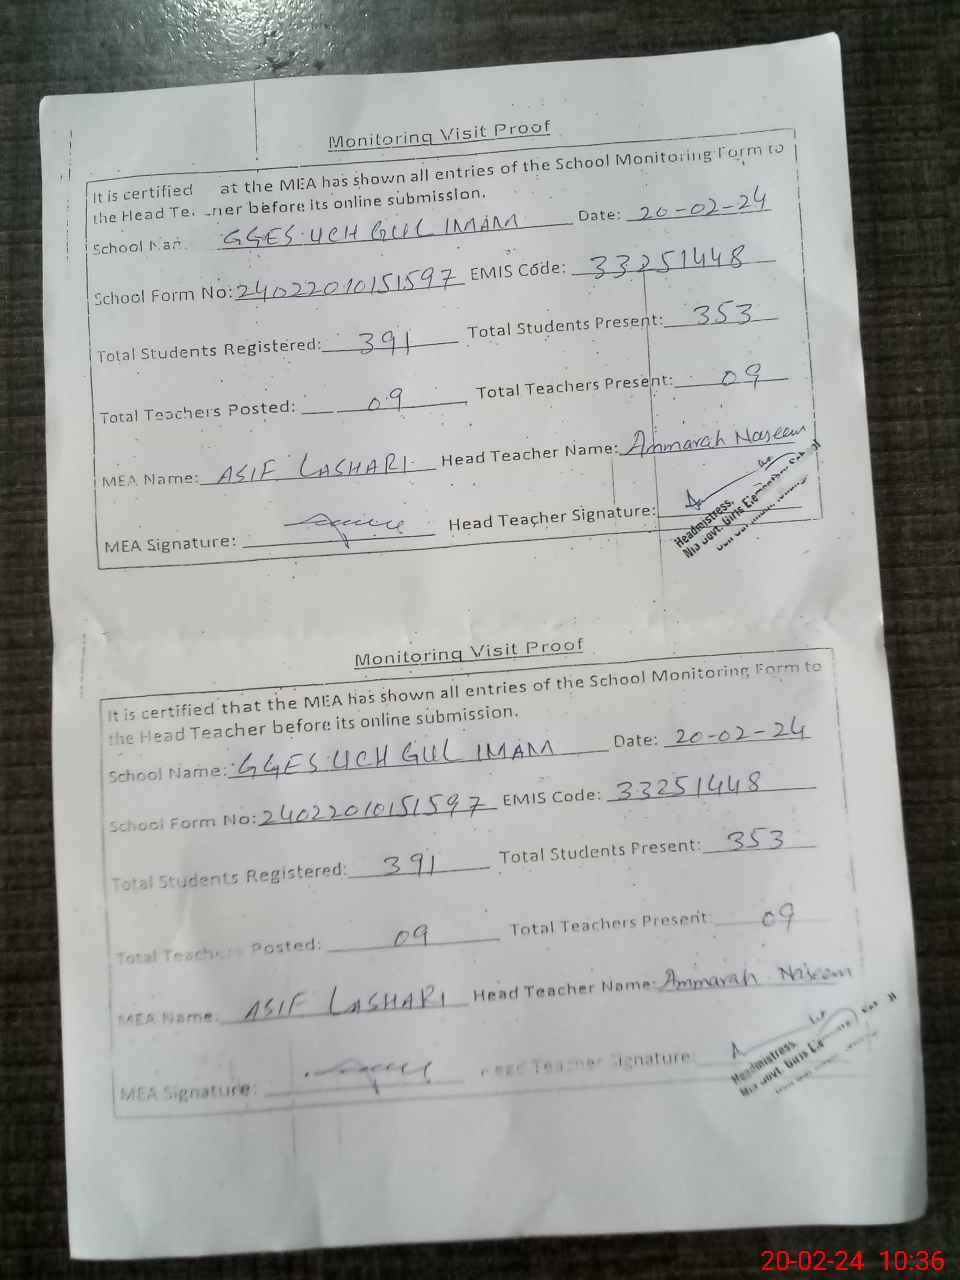 Monitoring Visit Proof
It is certified at the MEA has shown all entries of the School Monitoring Form to
the Head Te. .ner before its online submission.
School Nan GGES UCH GUL IMAM Date: 20-02-24
School Form No: 24022010151597 EMIS Code: 33251448
Total Students Registered: 391 Total Students Present: 353
Total Teachers Posted: 09 Total Teachers Present: 09
MEA Name: ASIF LASHARI Head Teacher Name: Ammarah Naseem
MEA Signature: Head Teacher Signature:
Headmistress,
Govt. Girls Elementary School
Monitoring Visit Proof
It is certified that the MEA has shown all entries of the School Monitoring Form to
the Head Teacher before its online submission.
School Name: GGES UCH GUL IMAM Date: 20-02-24
School Form No: 24022010151597 EMIS Code: 33251448
Total Students Registered: 391 Total Students Present: 353
Total Teachers Posted: 09 Total Teachers Present: 09
MEA Name: ASIF LASHARI Head Teacher Name: Ammarah Naseem
MEA Signature: Head Teacher Signature:
Headmistress,
Govt. Girls
20-02-24 10:36